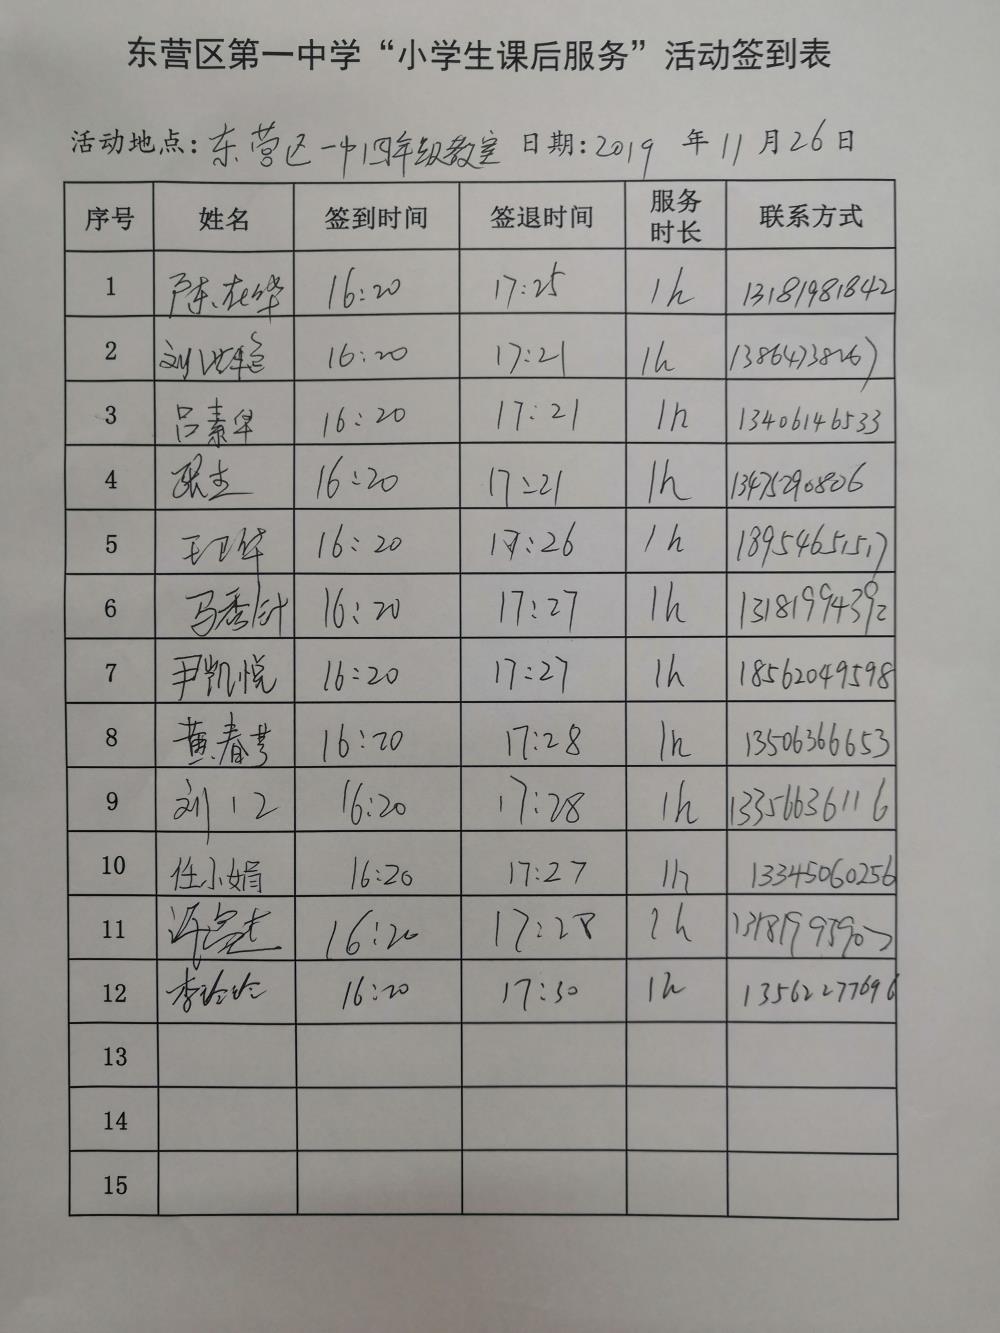 东营区第一中学“小学生课后服务”活动签到表
活动地点: 东营区一中四年级教室 日期: 2019 年 11 月 26 日
序号 姓名 签到时间 签退时间 服务时长 联系方式
1 16:20 17:25 1h 13181981842
2 16:20 17:21 1h
3 吕素华 16:20 17:21 1h 13406146533
4 16:20 17:21 1h 13475290806
5 王卫华 16:20 17:26 1h 18954651517
6 16:20 17:27 1h 13181994392
7 尹凯悦 16:20 17:27 1h 18562049598
8 16:20 17:28 1h 13506366653
9 16:20 17:28 1h 13356636116
10 任小娟 16:20 17:27 1h 13345060256
11 16:20 17:28 1h
12 李玲玲 16:20 17:30 1h 13562277696
13
14
15